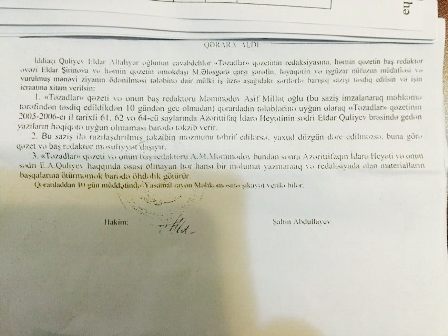 QƏRARA ALDI
İddiaçı Quliyev Eldar Allahyar oğlunun cavabdehlər «Təzadlar» qəzetinin redaksiyasına, həmin qəzetin baş redaktor
əvəzi Eldar və həmin qəzetin əməkdaşı M.Ələsgərə qarşı şərəfin, ləyaqətin və işgüzar nüfuzun müdafiəsi və
vurulmuş mənəvi ziyanın ödənilməsi tələbinə dair mülki iş üzrə aşağıdakı şərtlərlə barışıq sazişi təsdiq edilsin və işin
icraatına xitam verilsin:
1. «Təzadlar» qəzeti və onun baş redaktoru Məmmədov Asif Millət oğlu (bu saziş imzalanaraq məhkəmə
tərəfindən təsdiq edildikdən 10 gündən gec olmadan) qərardadın tələblərinə uyğun olaraq «Təzadlar» qəzetinin
2005-2006-cı il tarixli 61, 62 və 64-cü saylarında Azəntifaq İdarə Heyətinin sədri Eldar Quliyev barəsində gedən
yazıların həqiqətə uyğun olmaması barədə təkzib verir.
2. Bu saziş ilə razılaşdırılmış təkzibin məzmunu təhrif edilərsə, yaxud düzgün dərc edilməzsə, buna görə
qəzet və baş redaktor məsuliyyət daşıyır.
3. «Təzadlar» qəzeti və onun baş redaktoru A.M.Məmmədov, bundan sonra Azəntifaqın İdarə Heyəti və onun
sədri E.A.Quliyev haqqında əsası olmayan hər hansı bir məlumat yazmamaq və redaksiyada olan materialların
başqalarına ötürməmək barədə öhdəlik götürür.
Qərardaddan 10 gün müddətində Yasamal rayon Məhkəməsinə şikayət verilə bilər.
Hakim: Şahin Abdullayev